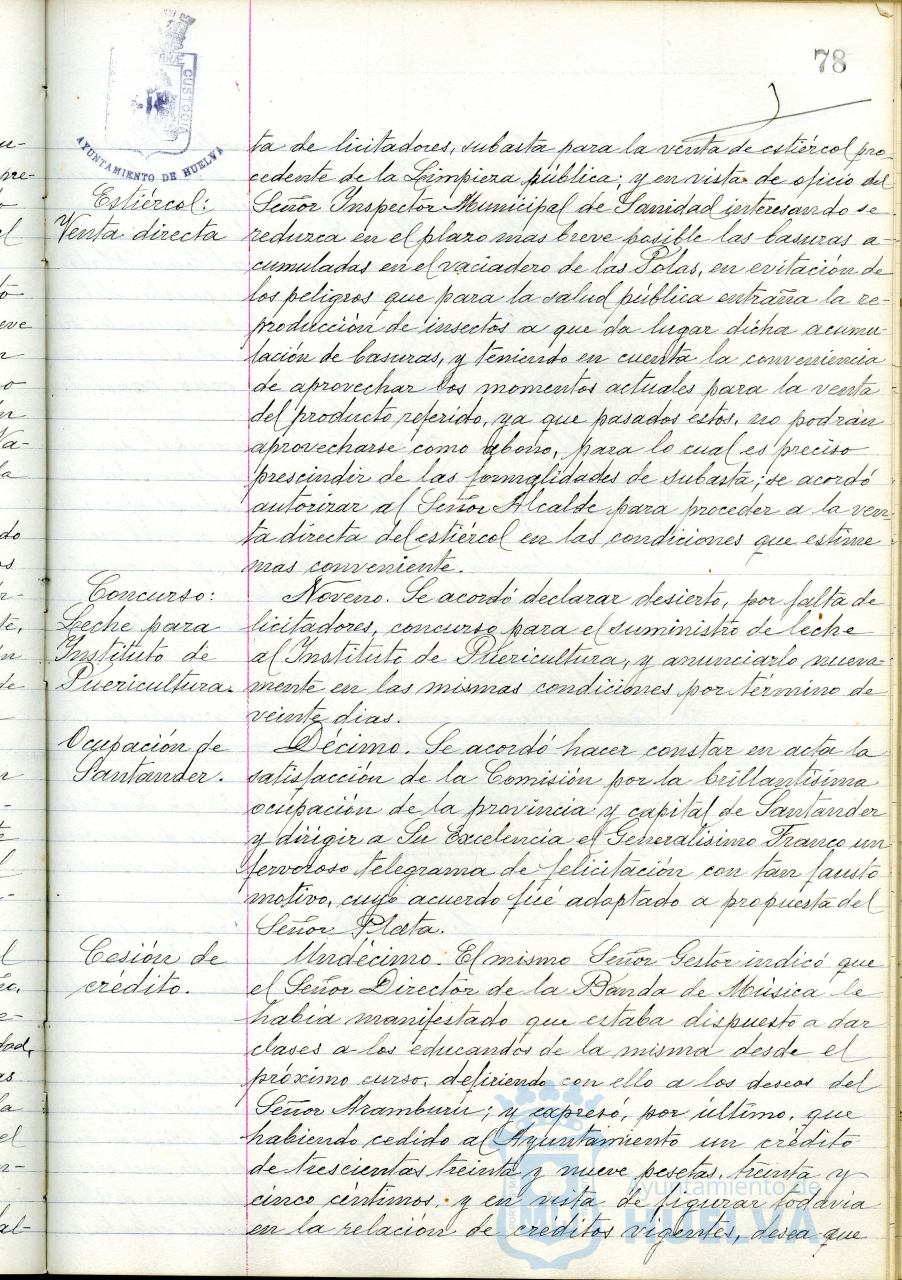 78
CUSTODIA
AYUNTAMIENTO DE HUELVA
ta de licitadores, subasta para la venta de estiércol pro-
cedente de la Limpieza pública; y en vista de oficio del
Estiércol:
Señor Inspector Municipal de Sanidad interesando se
Venta directa
reduzca en el plazo mas breve posible las basuras a-
cumuladas en el vaciadero de las Polas, en evitación de
los peligros que para la salud pública entraña la re-
producción de insectos a que da lugar dicha acumu-
lación de basuras, y teniendo en cuenta la conveniencia
de aprovechar los momentos actuales para la venta
del producto referido, ya que pasados éstos, no podrán
aprovecharse como abono, para lo cual es preciso
prescindir de las formalidades de subasta; se acordó
autorizar al Señor Alcalde para proceder a la ven-
ta directa del estiércol en las condiciones que estime
mas conveniente.
Concurso:
Leche para
Instituto de
Puericultura.
Noveno. Se acordó declarar desierto, por falta de
licitadores, concurso para el suministro de leche
al Instituto de Puericultura, y anunciarlo nueva-
mente en las mismas condiciones por término de
veinte dias.
Ocupación de
Santander.
Décimo. Se acordó hacer constar en acta la
satisfacción de la Comisión por la brillantísima
ocupación de la provincia y capital de Santander
y dirigir a Su Excelencia el Generalísimo Franco un
fervoroso telegrama de felicitación con tan fausto
motivo, cuyo acuerdo fué adoptado a propuesta del
Señor Plata.
Cesión de
crédito.
Undécimo. El mismo Señor Gestor indicó que
el Señor Director de la Banda de Música le
había manifestado que estaba dispuesto a dar
clases a los educandos de la misma desde el
próximo curso, defiriendo con ello a los deseos del
Señor Aramburu; y expresó, por último, que
habiendo cedido al Ayuntamiento un crédito
de trescientas treinta y nueve pesetas, treinta y
cinco céntimos, y en vista de figurar todavía
en la relación de créditos vigentes, desea que
Ayuntamiento de
HUELVA